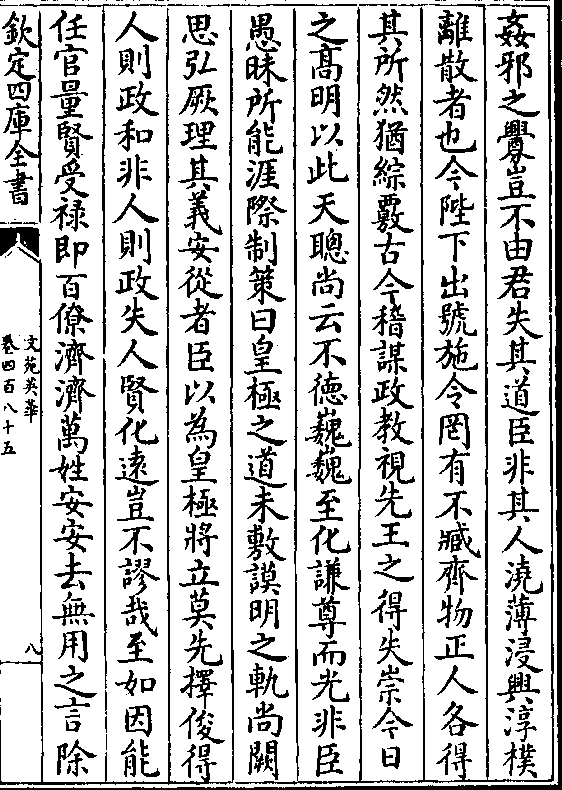 姦邪之釁豈不由君失其道臣非其人澆薄浸興淳樸
離散者也今陛下出號施令罔有不臧齊物正人各得
其所然猶綜覈古今稽謀政教視先王之得失崇今日
之髙明以此天聰尚云不德巍巍至化謙尊而光非臣
愚昧所能涯際制策曰皇極之道未敷謨明之軌尚闕
思弘厥理其義安從者臣以為皇極將立莫先擇俊得
人則政和非人則政失人賢化遠豈不謬哉至如因能
任官量賢受禄即百僚濟濟萬姓安安去無用之言除
欽定四庫全書
文苑英華
卷四百八十五
八